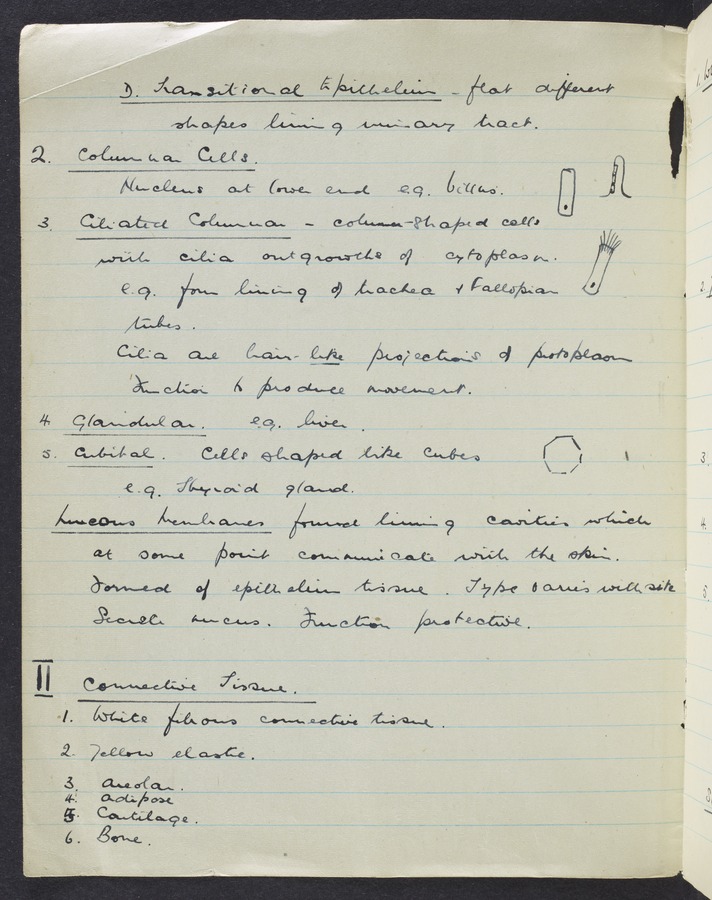 D. Transitional Epithelium - flat different
shapes lining urinary tract.
2. Columnar Cells.
Nucleus at lower end e.g. villus.
3. Ciliated Columnar - column-shaped cells
with cilia outgrowths of cytoplasm.
e.g. from lining of trachea & Fallopian
tubes.
Cilia are hair-like projections of protoplasm
Function to produce movement.
4 Glandular. e.g. liver.
5. Cubital. Cells shaped like cubes
e.g. Thyroid gland.
Mucous Membranes found lining cavities which
at some point communicate with the skin.
Formed of epithelium tissue. Type varies with site
Secrete mucus. Function protective.
II Connective Tissue.
1. White fibrous connective tissue.
2. Yellow elastic.
3. Areolar.
4. Adipose
5 Cartilage.
6. Bone.